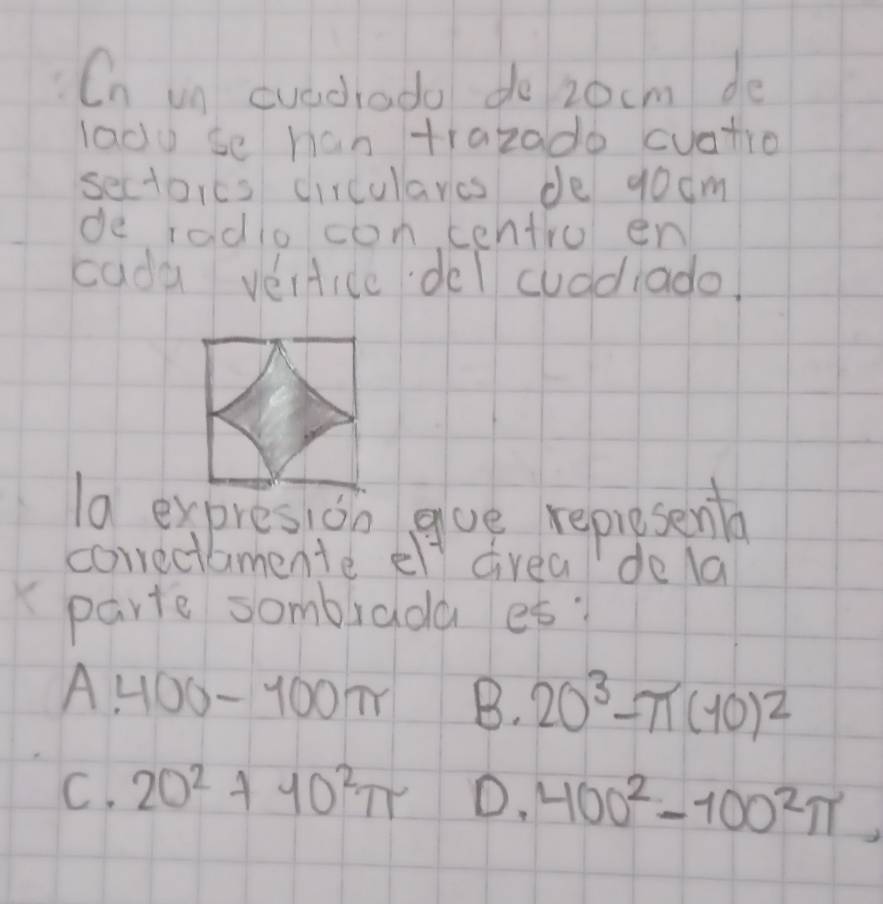 En un cuadrado de 20cm de
lado se han trazado cuatro
sectores circulares de 10cm
de radio con centro en
cada vértice del cuadrado.
la expresión que representa
correctamente el área de la
parte sombrada es:
A. 400 - 100π B. 20³ - π(10)²
C. 20² + 10²π D. 400² - 100²π